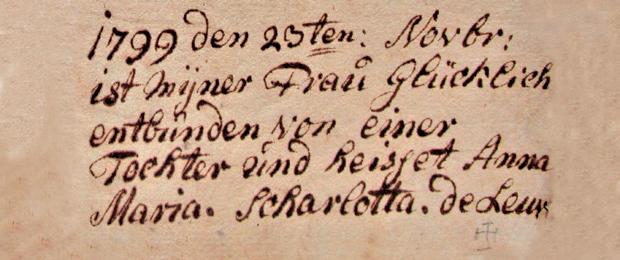 1799 den 23ten: Novbr:
ist Mÿner Fraŭ Glücklich
entbŭnden von einer
Tochter ŭnd heisset Anna
Maria. Scharlotta. de Leuw